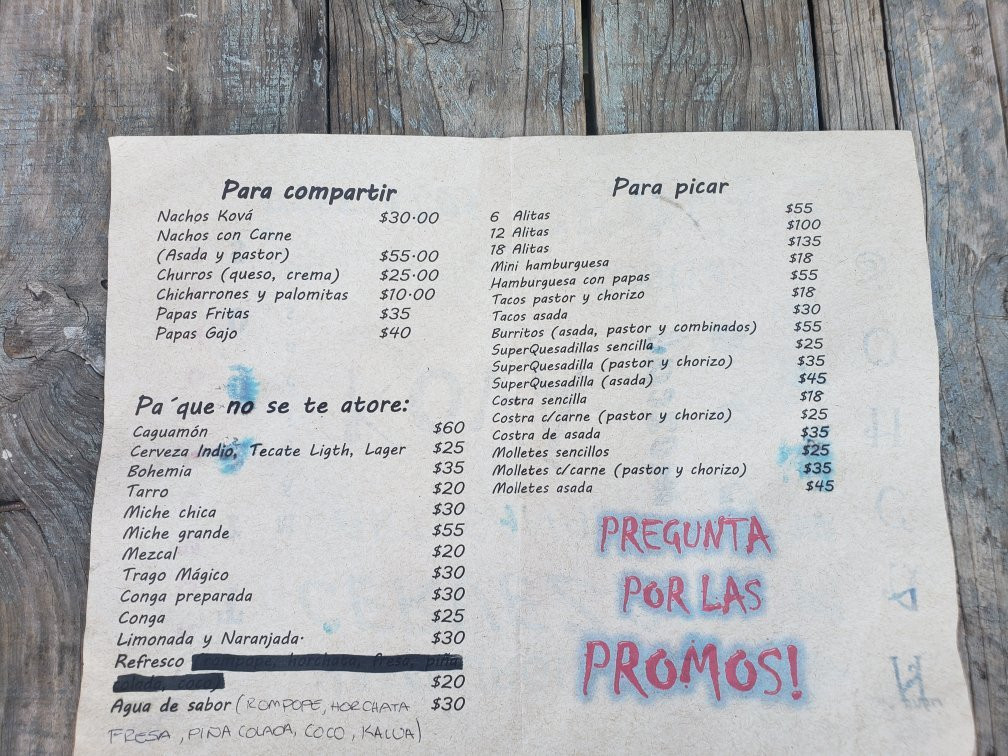 Para compartir
Nachos Ková $30.00
Nachos con Carne
(Asada y pastor) $55.00
Churros (queso, crema) $25.00
Chicharrones y palomitas $10.00
Papas Fritas $35
Papas Gajo $40
Pa´que no se te atore:
Caguamón $60
Cerveza Indio, Tecate Ligth, Lager $25
Bohemia $35
Tarro $20
Miche chica $30
Miche grande $55
Mezcal $20
Trago Mágico $30
Conga preparada $30
Conga $25
Limonada y Naranjada. $30
Refresco
$20
Agua de sabor (ROMPOPE, HORCHATA $30
FRESA, PIÑA COLADA, COCO, KALUA)
Para picar
6 Alitas $55
12 Alitas $100
18 Alitas $135
Mini hamburguesa $18
Hamburguesa con papas $55
Tacos pastor y chorizo $18
Tacos asada $30
Burritos (asada, pastor y combinados) $55
SuperQuesadillas sencilla $25
SuperQuesadilla (pastor y chorizo) $35
SuperQuesadilla (asada) $45
Costra sencilla $18
Costra c/carne (pastor y chorizo) $25
Costra de asada $35
Molletes sencillos $25
Molletes c/carne (pastor y chorizo) $35
Molletes asada $45
PREGUNTA
POR LAS
PROMOS!